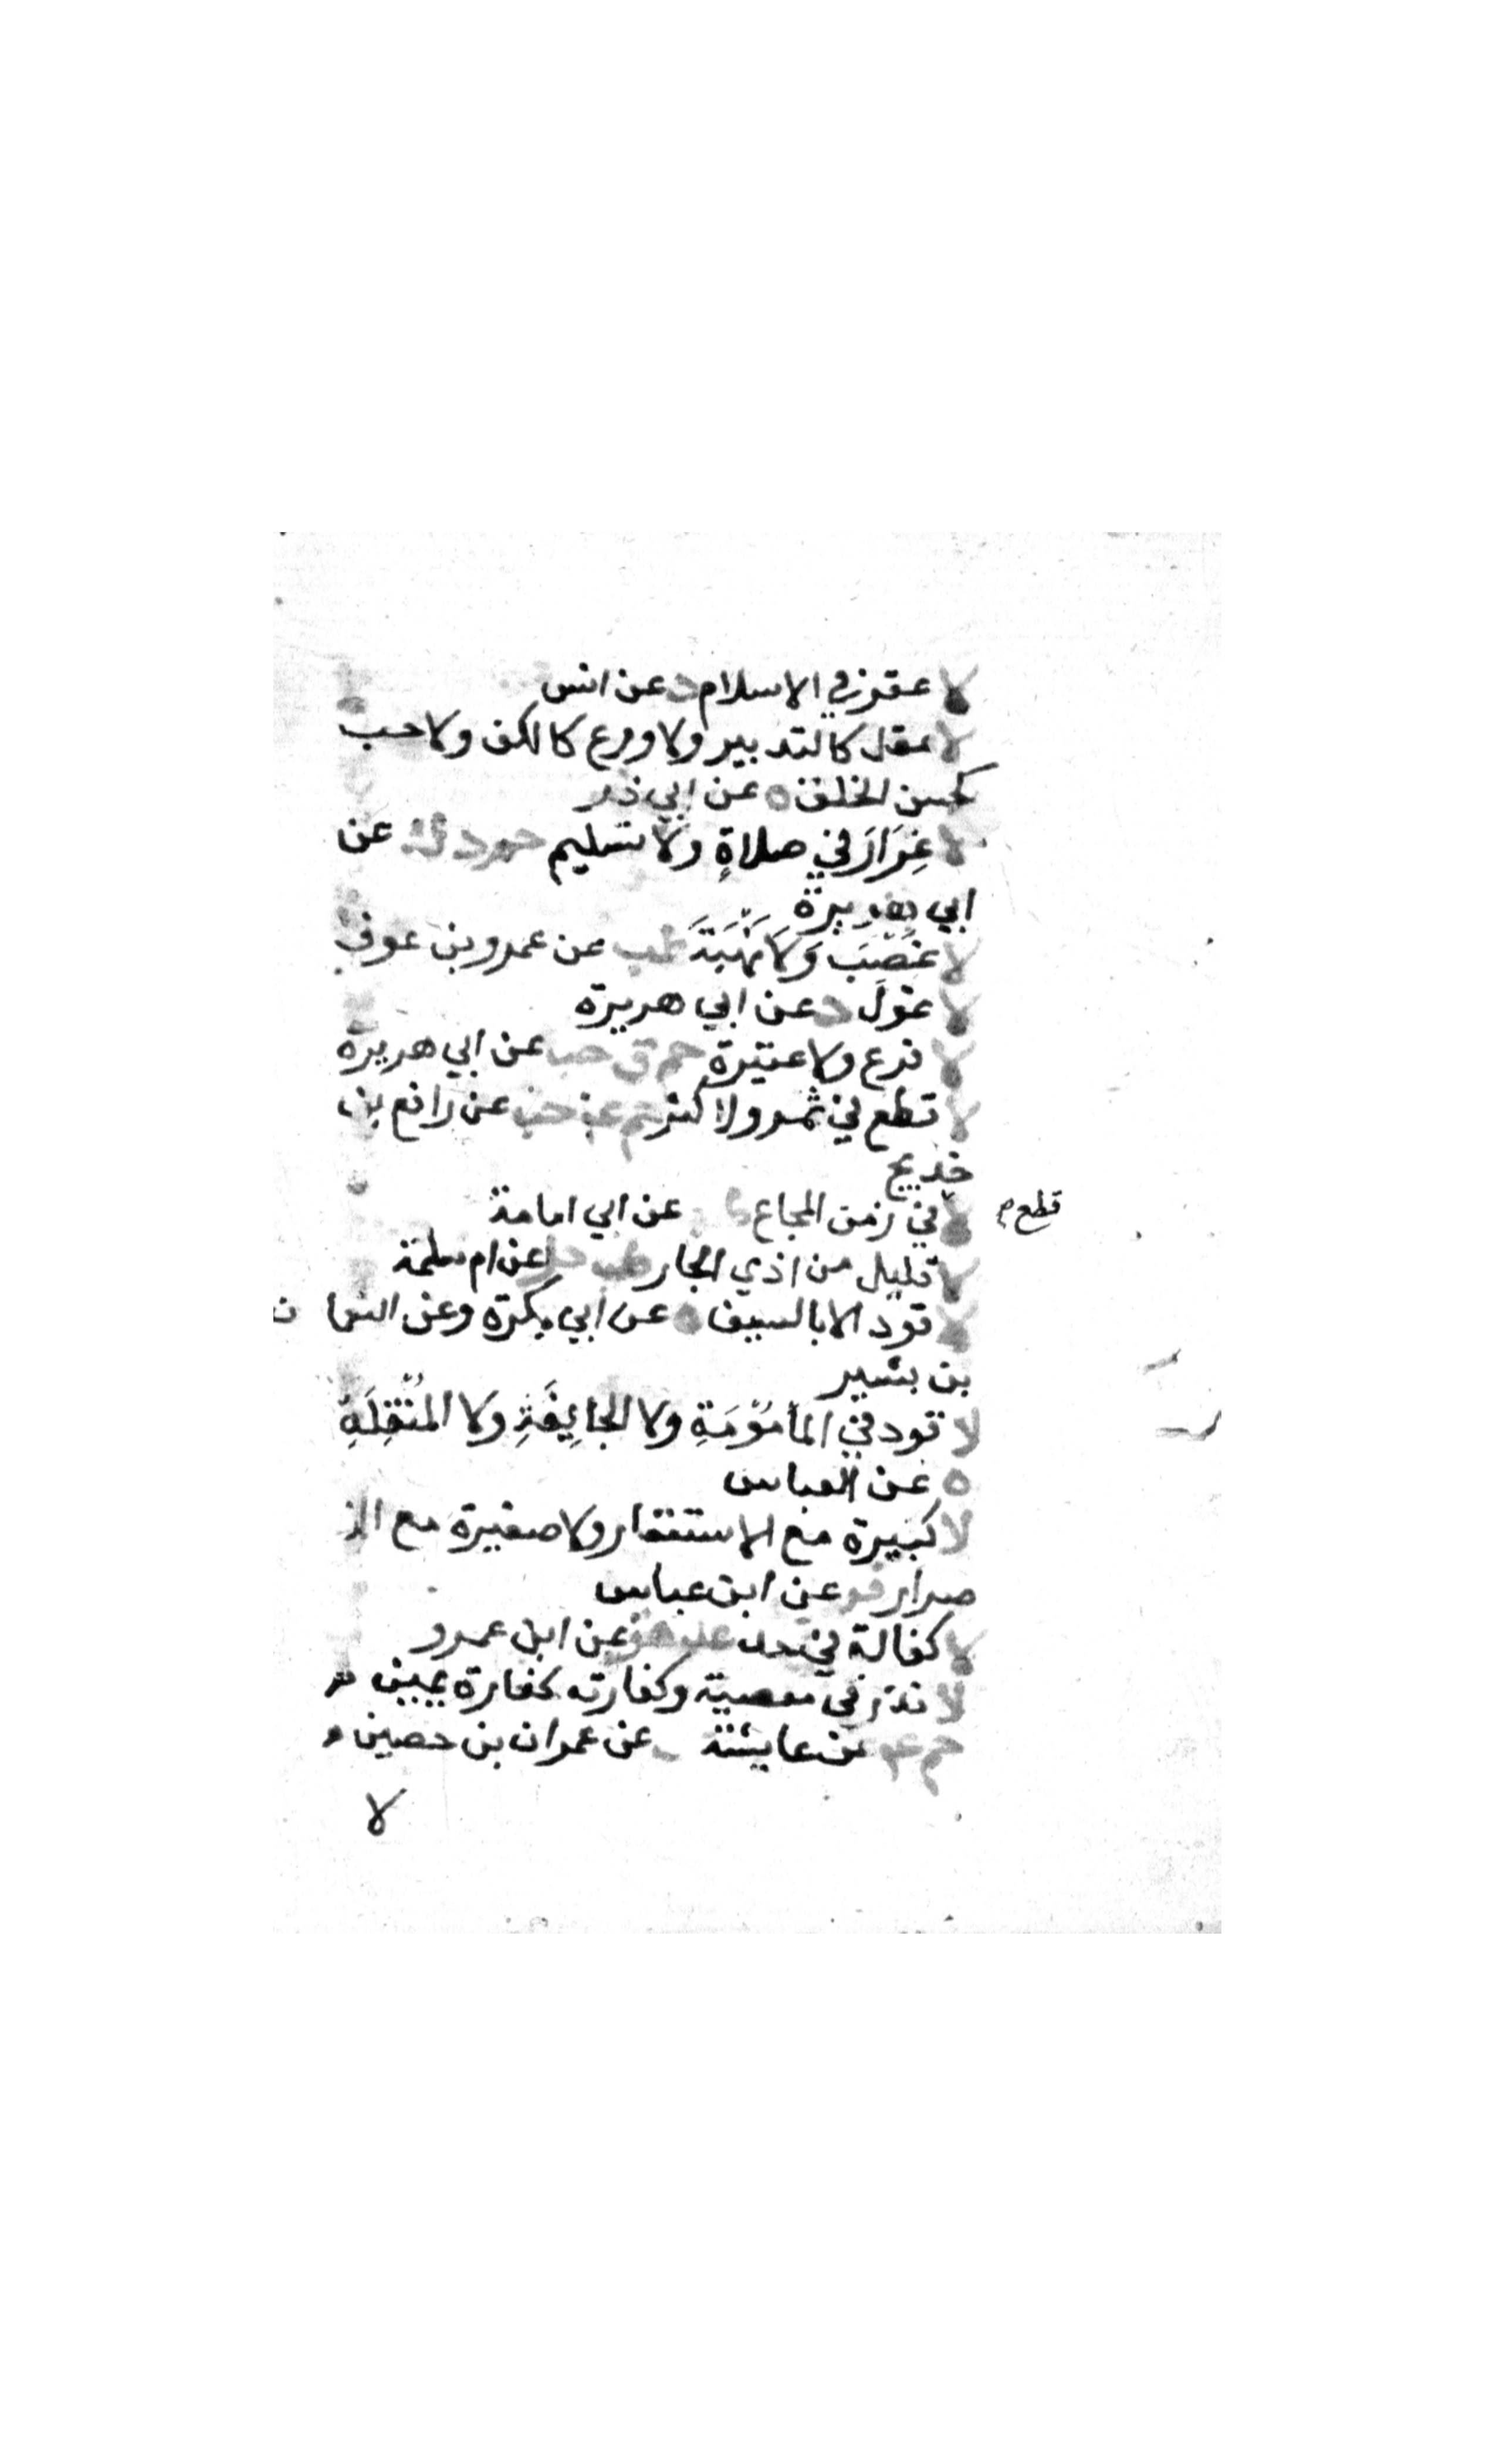 لا عقر في الاسلام د عن انس
لا عقل كالتدبير ولا ورع كالكف ولا حسب
كحسن الخلق ه عن ابي ذر
لا غِرَارَ في صلاةٍ ولا تسليم حم د ك عن
ابي هريرة
لا غَصْبَ وَلَا نُهْبَةَ طب عن عمرو بن عوف
لا غول د عن ابي هريرة
لا فرع ولا عتيرة حم ق عن ابي هريرة
لا قطع في ثمر ولا كثر حم حب عن رافع بن
خديج
لا في زمن المجاع عن ابي امامة
قطع
لا قليل من اذي الجار طب حل عن ام سلمة
لا قود الا بالسيف ه عن ابي بكرة وعن النعمان
بن بشير
لا قود في المأمُوْمَةِ ولا الجايِفَةِ ولا المُنَّقِلَةِ
ه عن العباس
لا كبيرة مع الاستغفار ولا صغيرة مع الا
صرار فر عن ابن عباس
لا كفالة في حد عد هق عن ابن عمرو
لا نذر في معصية وكفارته كفارة يمين
حم عن عايشة ن عن عمران بن حصين
لا